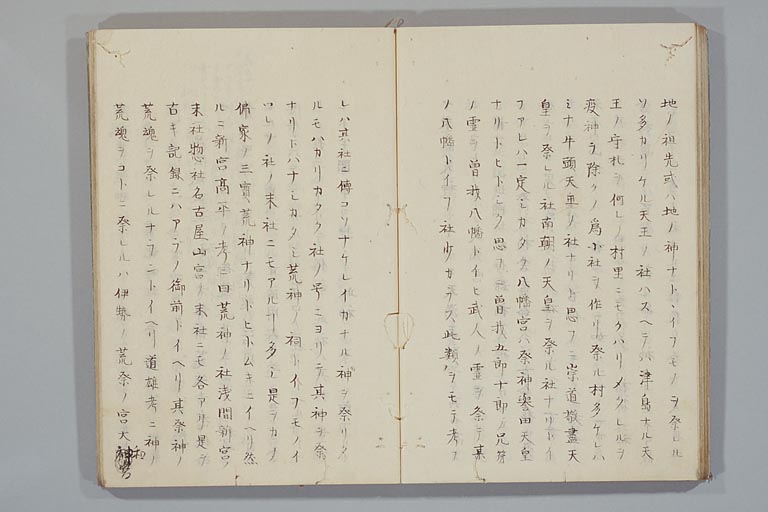 地ノ祖先或ハ地ノ神ナト、イフモノヲ祭レル
ソ多カリケル天王ノ社ハスヘテ津島ナル天
王ノ守札ヲ何レノ村里ニモクハリメクレルヲ
疫神ヲ除クノ為小社ヲ作リ祭ル村多ケレハ
ミナ牛頭天王ノ社ナリト思フニ崇道敬盡天
皇ヲ祭レル社南朝ノ天皇ヲ祭ル社ナリトイ
ファレハ一定シカタク八幡宮ハ祭神誉田天皇
ナリトヒトシク思ヘ曽我五郎十郎ノ兄弟
ノ霊ヲ曽我八幡トイヒ武人ノ霊ヲ祭テ某
ノ八幡トイフ社少カラス此類ヲモテ考ス
レハ其社ニ傳コソナケレイカナル神ヲ祭リタ
ルモハカリカタク社ノ号ニヨリテ其神ヲ祭
ナリトハナシカタシ荒神ノ祠トイフモノイ
ツレノ社ノ末社ニモアルカ多シ是ヲカナ
佛家ノ三寳荒神ナリトヒトムキニイヘリ然
ルニ新宮高平ノ考ニ曰荒神ノ社浅間新宮ノ
末社惣社名古屋山宮ノ末社ニモ各アリ是ヲ
古キ記録ニハアラノ御前トイヘリ其祭神ノ
荒魂ヲ祭レルナラントイヘリ道雄考ニ神ノ
荒魂ヲコトニ祭レルハ伊勢ノ荒祭ノ宮大和